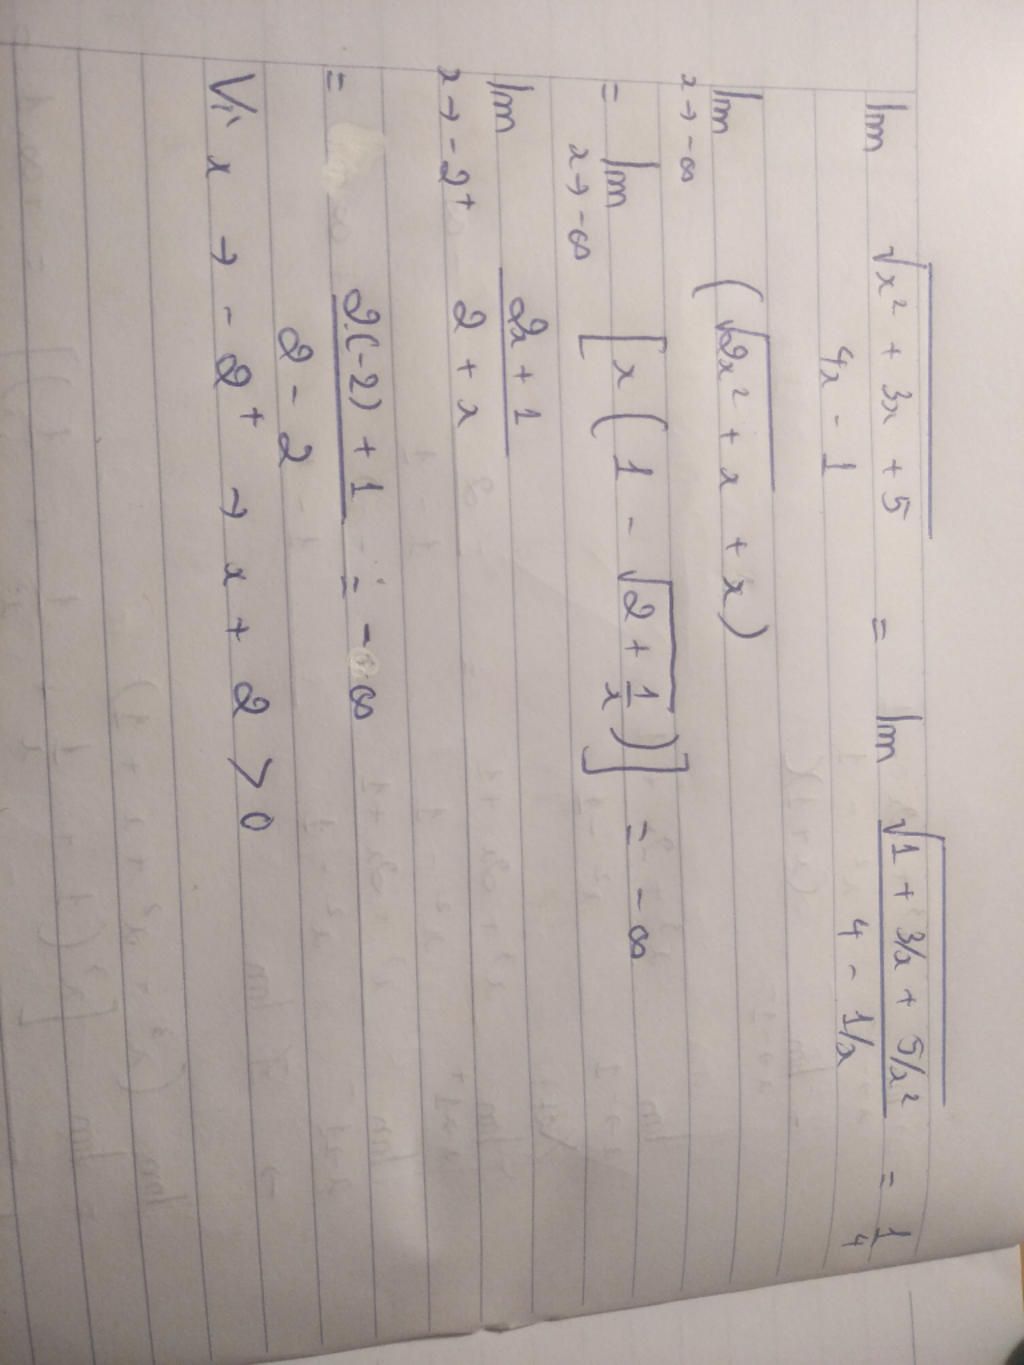 lim √(x² + 3x + 5) / (4x - 1) = lim √(1 + 3/x + 5/x²) / (4 - 1/x) = 1/4
lim x → -∞ (√(2x² + x) + x)
= lim x → -∞ [x (1 - √(2 + 1/x))] = -∞
lim x → -2⁺ (2x + 1) / (2 + x)
= (2.(-2) + 1) / (2 - 2) = -∞
Vì x → -2⁺ → x + 2 > 0